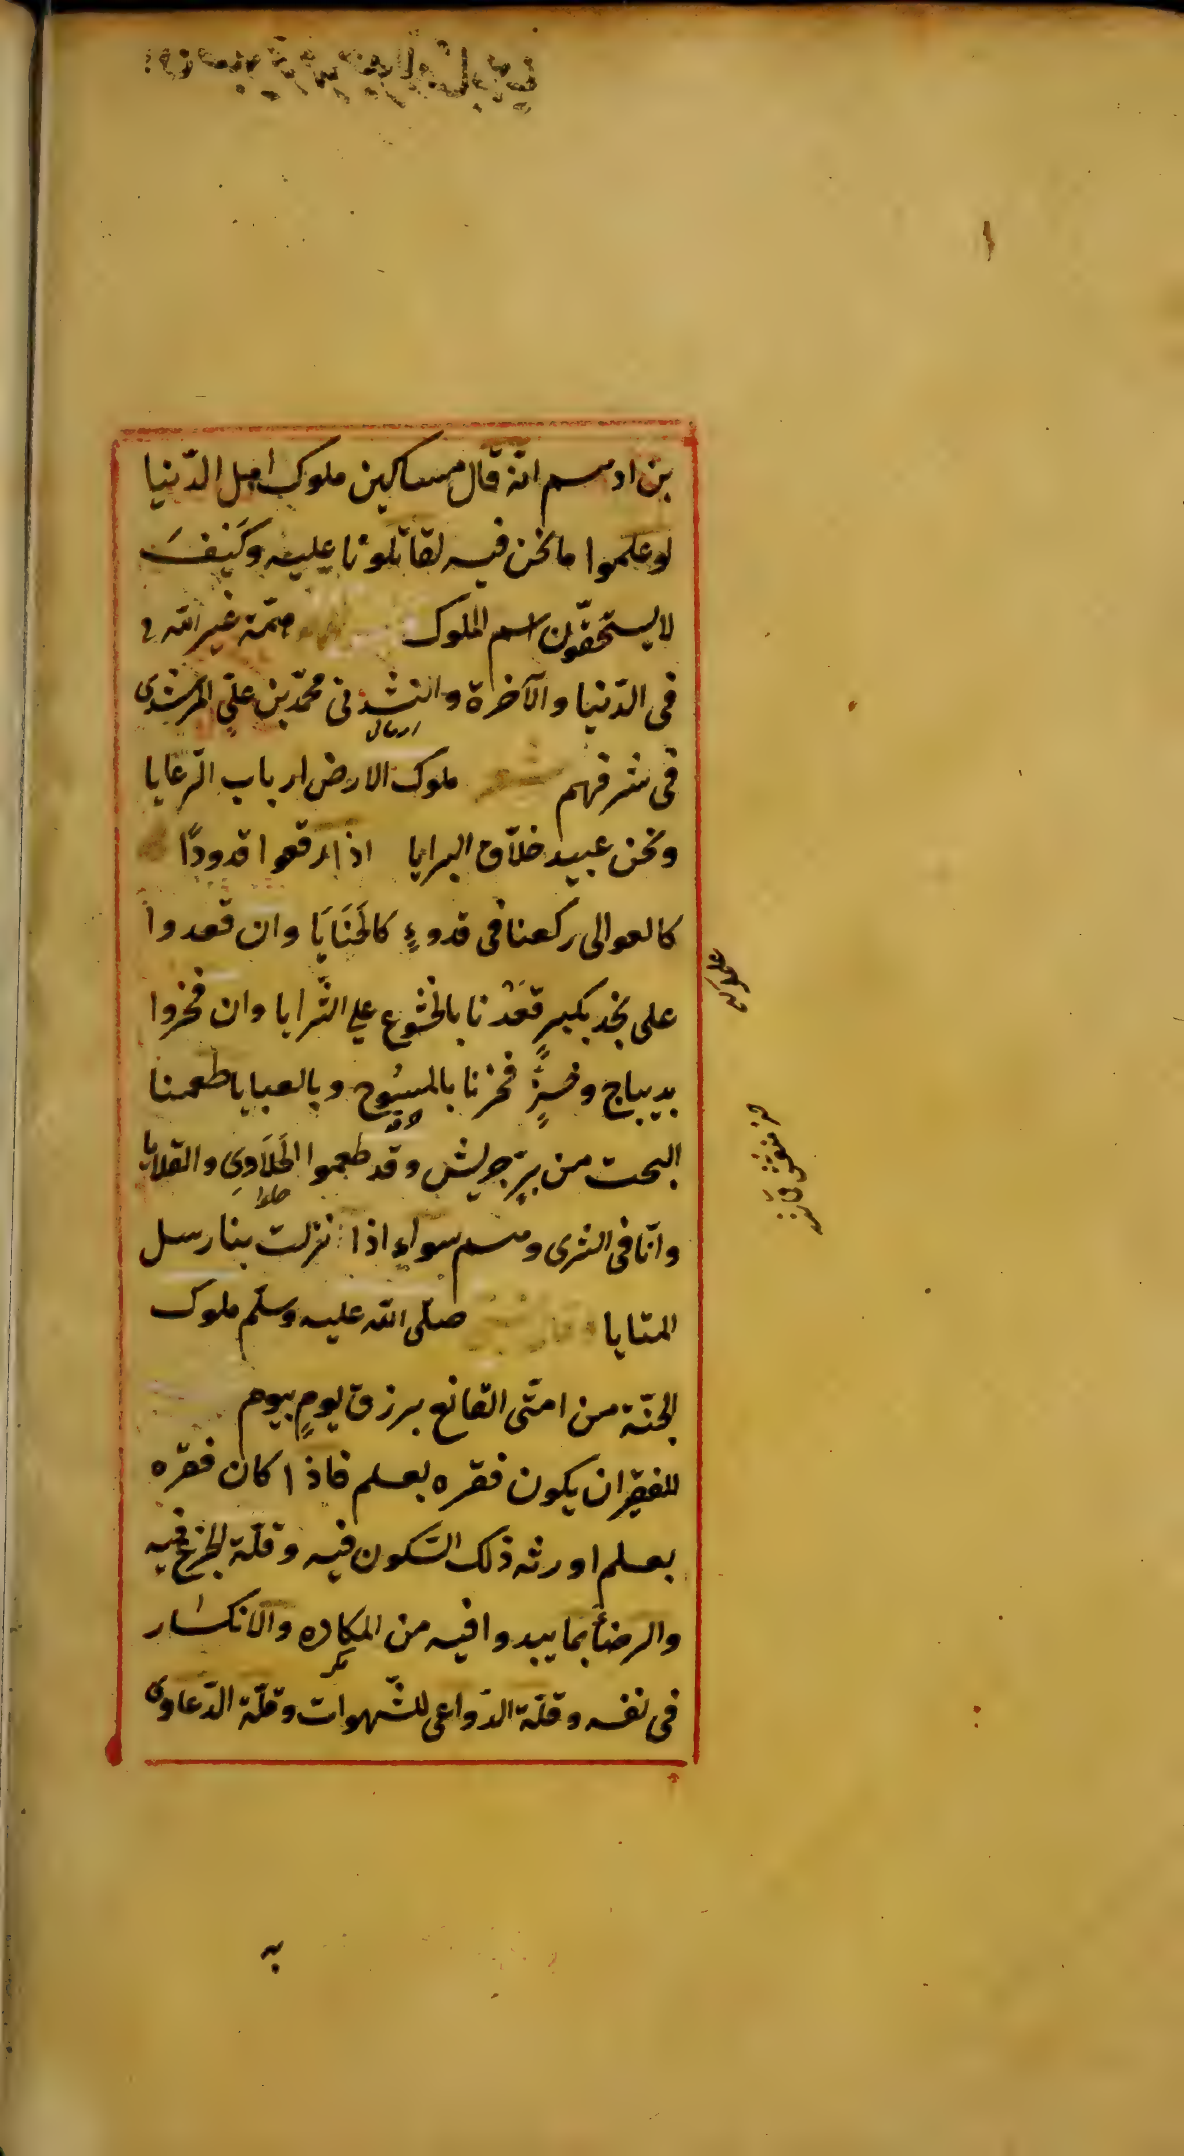 بن ادهم انّه قال مساكين ملوك اهل الدّنيا
لو علموا ما نحن فيه لقاتلونا عليه وكَيْفَ
لا يستحقّون اسم الملوك همّة غير الله
فى الدّنيا والآخرة وانشدنى محمّد بن علىٍ المرشدى
فى شرفهم شعر ملوك الارض ارباب الرّعايا
ونحن عبيد خلّاق البرايا اذا رقعوا قدودًا
كالعوالى ركعنا فى قدوءٍ كالحَنَايَا وان قعدوا
على نجد بكبرٍ قَعَدْنا بالخشوع على الثّرايا وان فخروا
بديباج وخزٍّ فخرنا بالمسُوح وبالعبايا طعمنا
البحت من برّ جريش وقد طعموا الحَلَاَوِى والقلايا
حلوا
وانّا فى الثرى وهم سواء اذا نزلت بنا رسل
المنايا قال صلّى الله عليه وسلّم ملوك
الجنّة من امتّى القانع برزق يومٍ بيوم
للفقير ان يكون فقره بعلم فاذا كان فقره
بعلم اورثه ذلك السّكون فيه وقلّة الجزع فيه
والرضأ بما يبدوا فيه من المكاره والانكسار
فى نفسه وقلّة الدّواعى للشّهوات وقلّة الدّعاوى
به